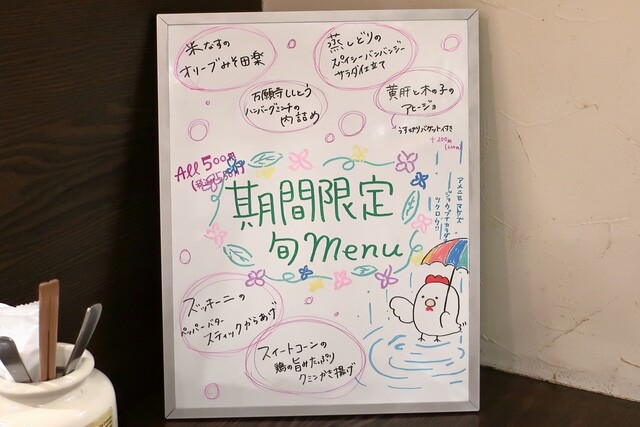 米なすの
オリーブみそ田楽
蒸しどりの
スパイシーバンバンジー
サラダ仕立て
万願寺ししとう
ハンバーグミンチの
肉詰め
黄肝と木の子の
アヒージョ
うす切りバゲット付き
All 500円
期間限定
旬Menu
アメニモマケズ
ジョウブナカラダ
ツクロウ!!
ズッキーニの
ペッパーバター
スティックからあげ
スイートコーンの
鶏の旨みたっぷり
クミンかき揚げ